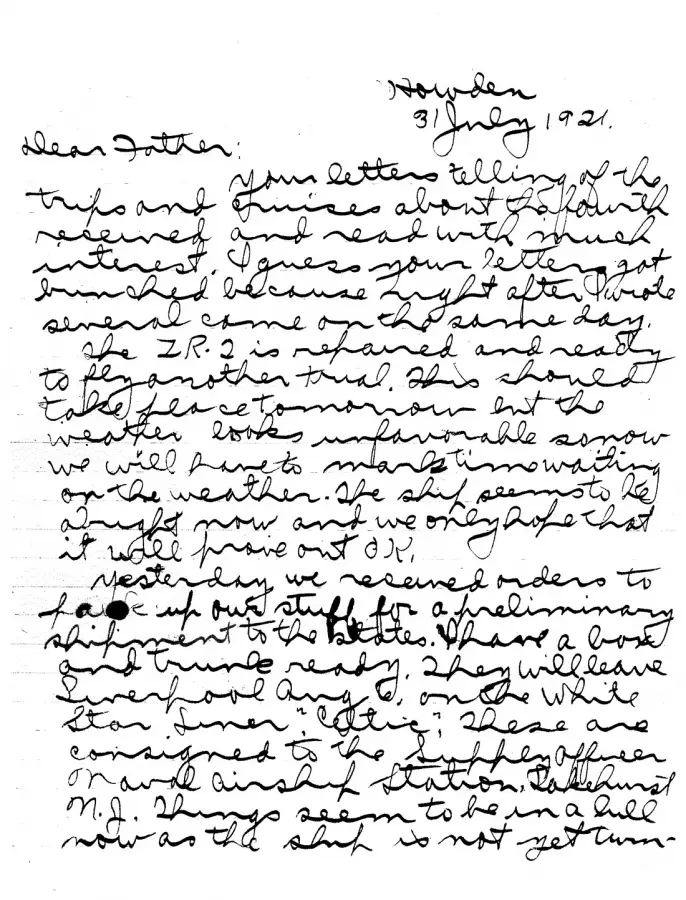 Howden
31 July 1921.
Dear Father:
Your letters telling of the
trips and cruises about the fourth
received and read with much
interest. I guess your letters got
bunched because right after I wrote
several came on the same day.
The ZR-2 is repaired and ready
to fly another trial. This should
take place tomorrow but the
weather looks unfavorable so now
we will have to mark time waiting
on the weather. The ship seems to be
alright now and we only hope that
it will prove out OK.
Yesterday we received orders to
up our stuff for a preliminary
shipment to the States. I have a box
and trunk ready. They will leave
Liverpool Aug 6, on the White
Star Liner "Celtic". These are
consigned to the Supply Officer
Naval Airship Station, Lakehurst
N.J. Things seem to be in a lull
now as the ship is not yet turn-